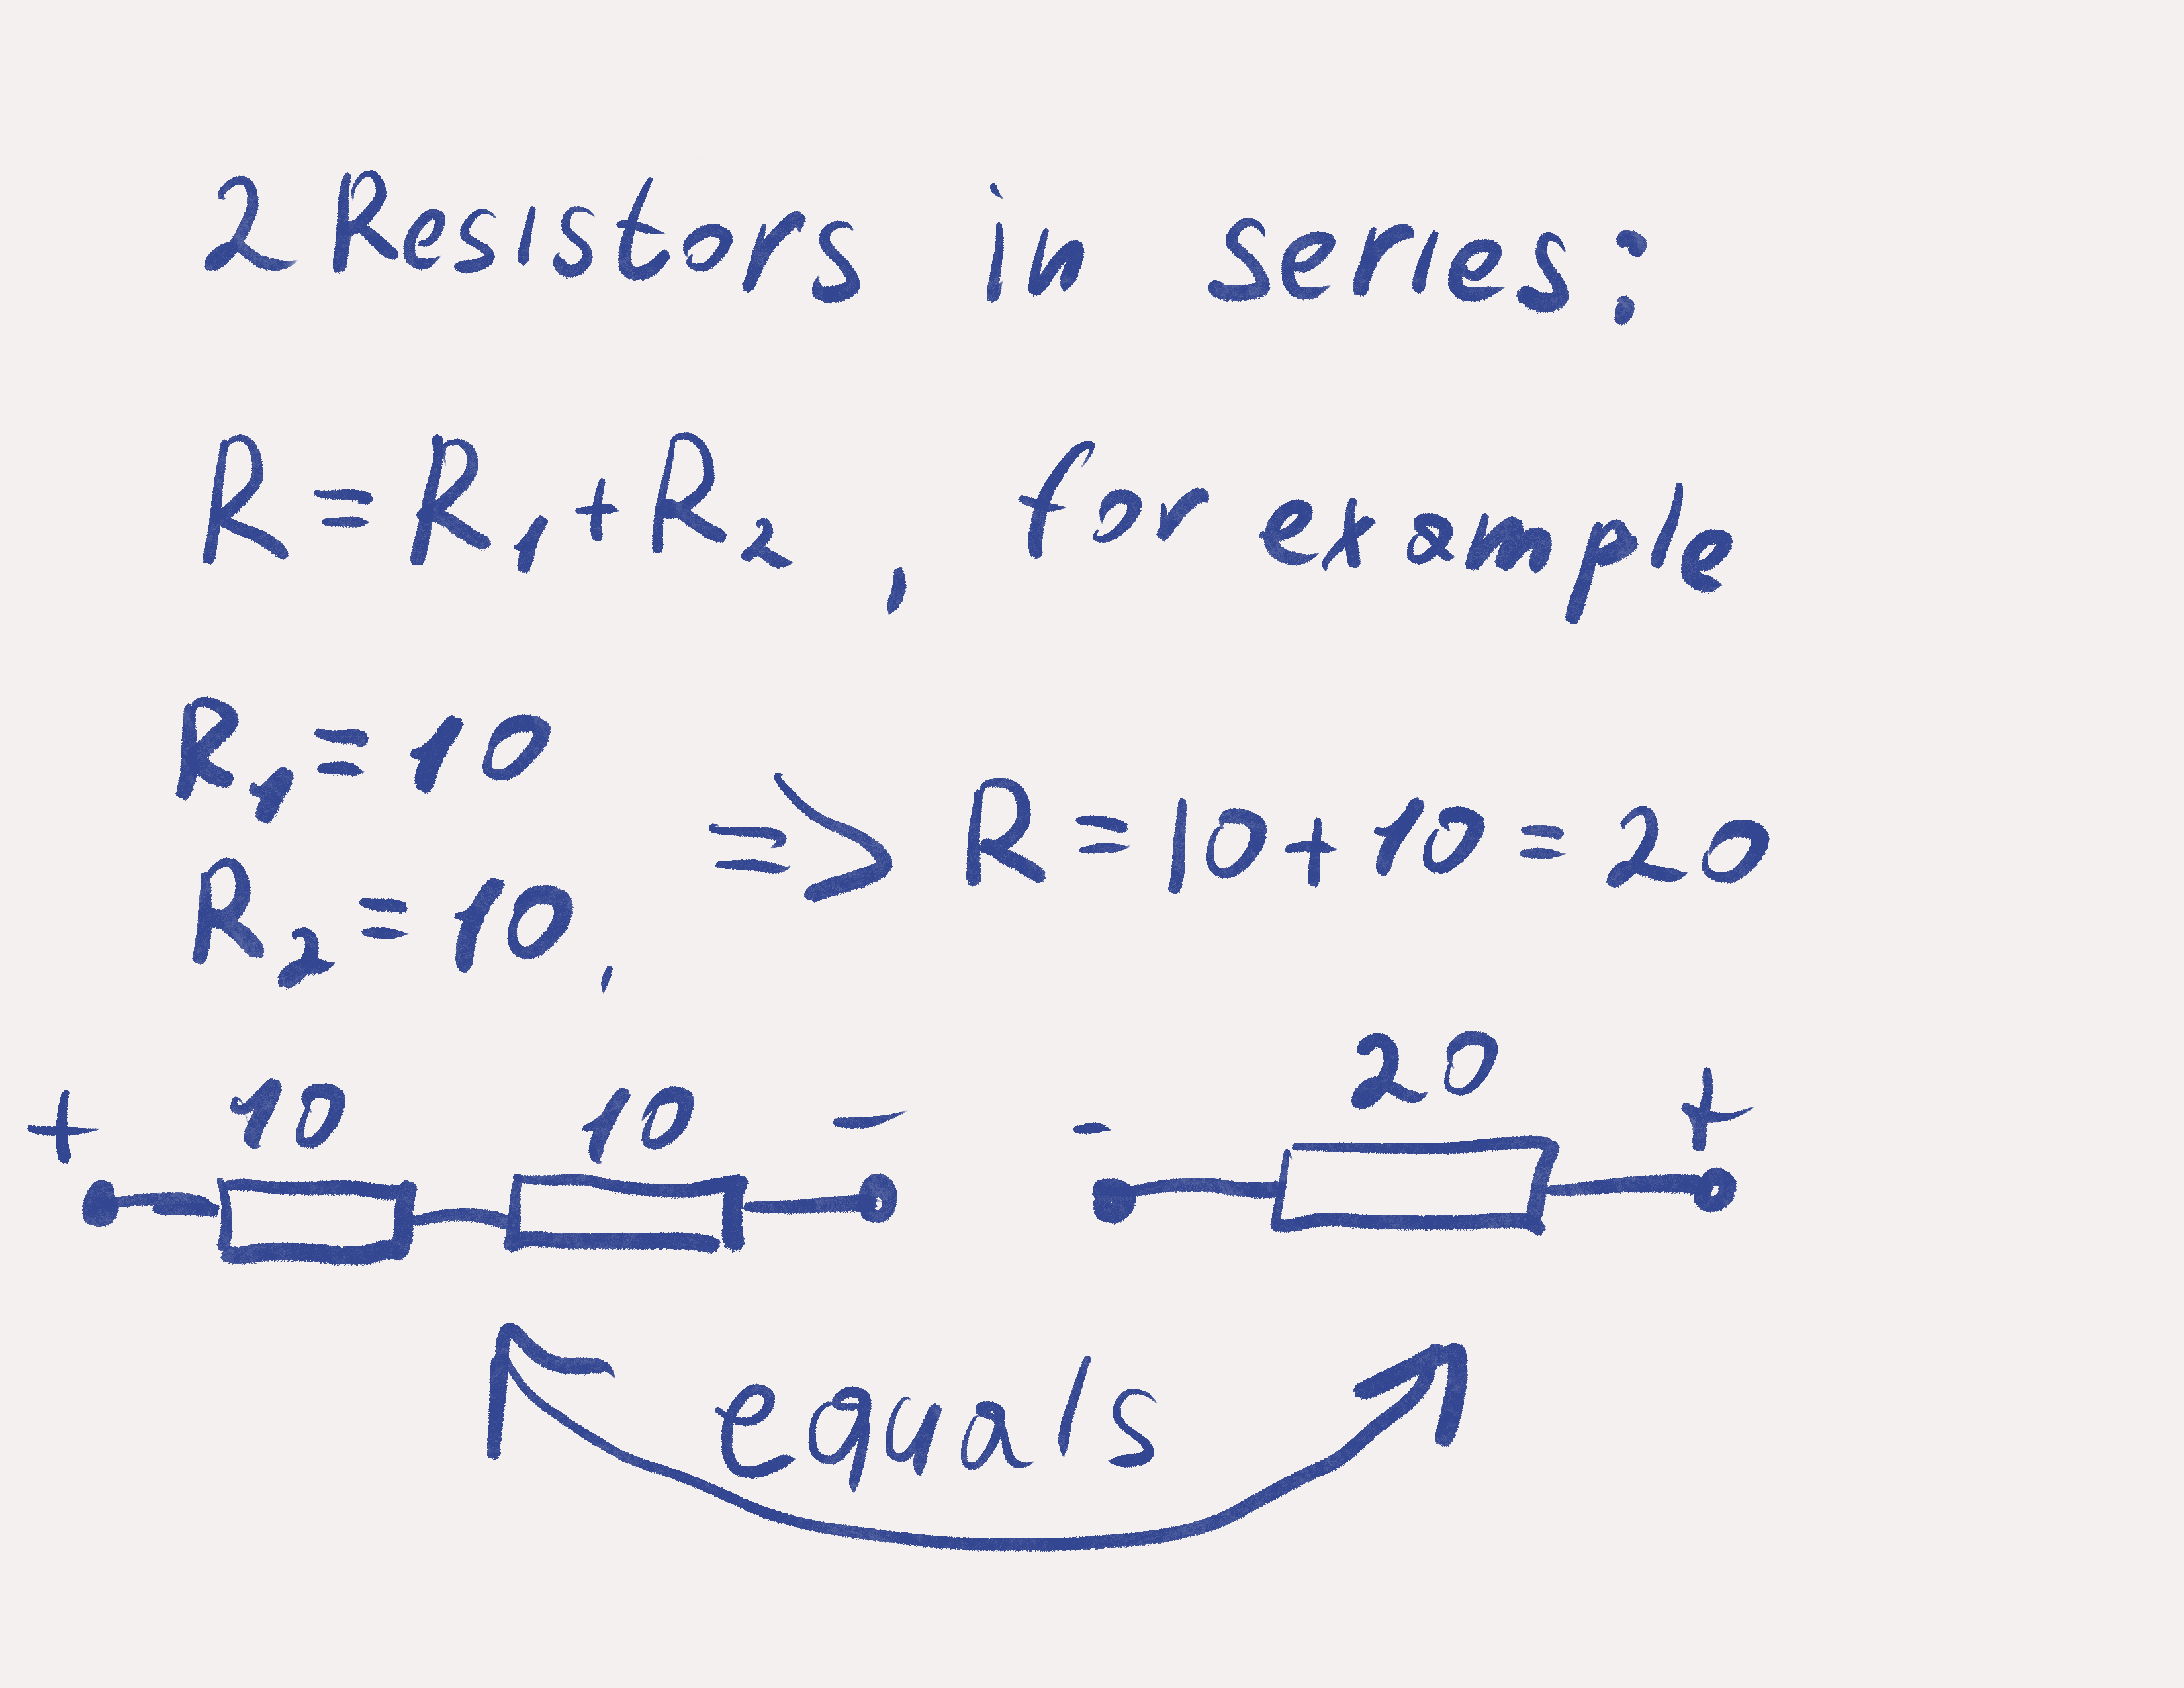 2 Resistors in series:
R = R₁ + R₂ , for example
R₁ = 10
=> R = 10 + 10 = 20
R₂ = 10,
+ 10 10 - - 20 +
equals